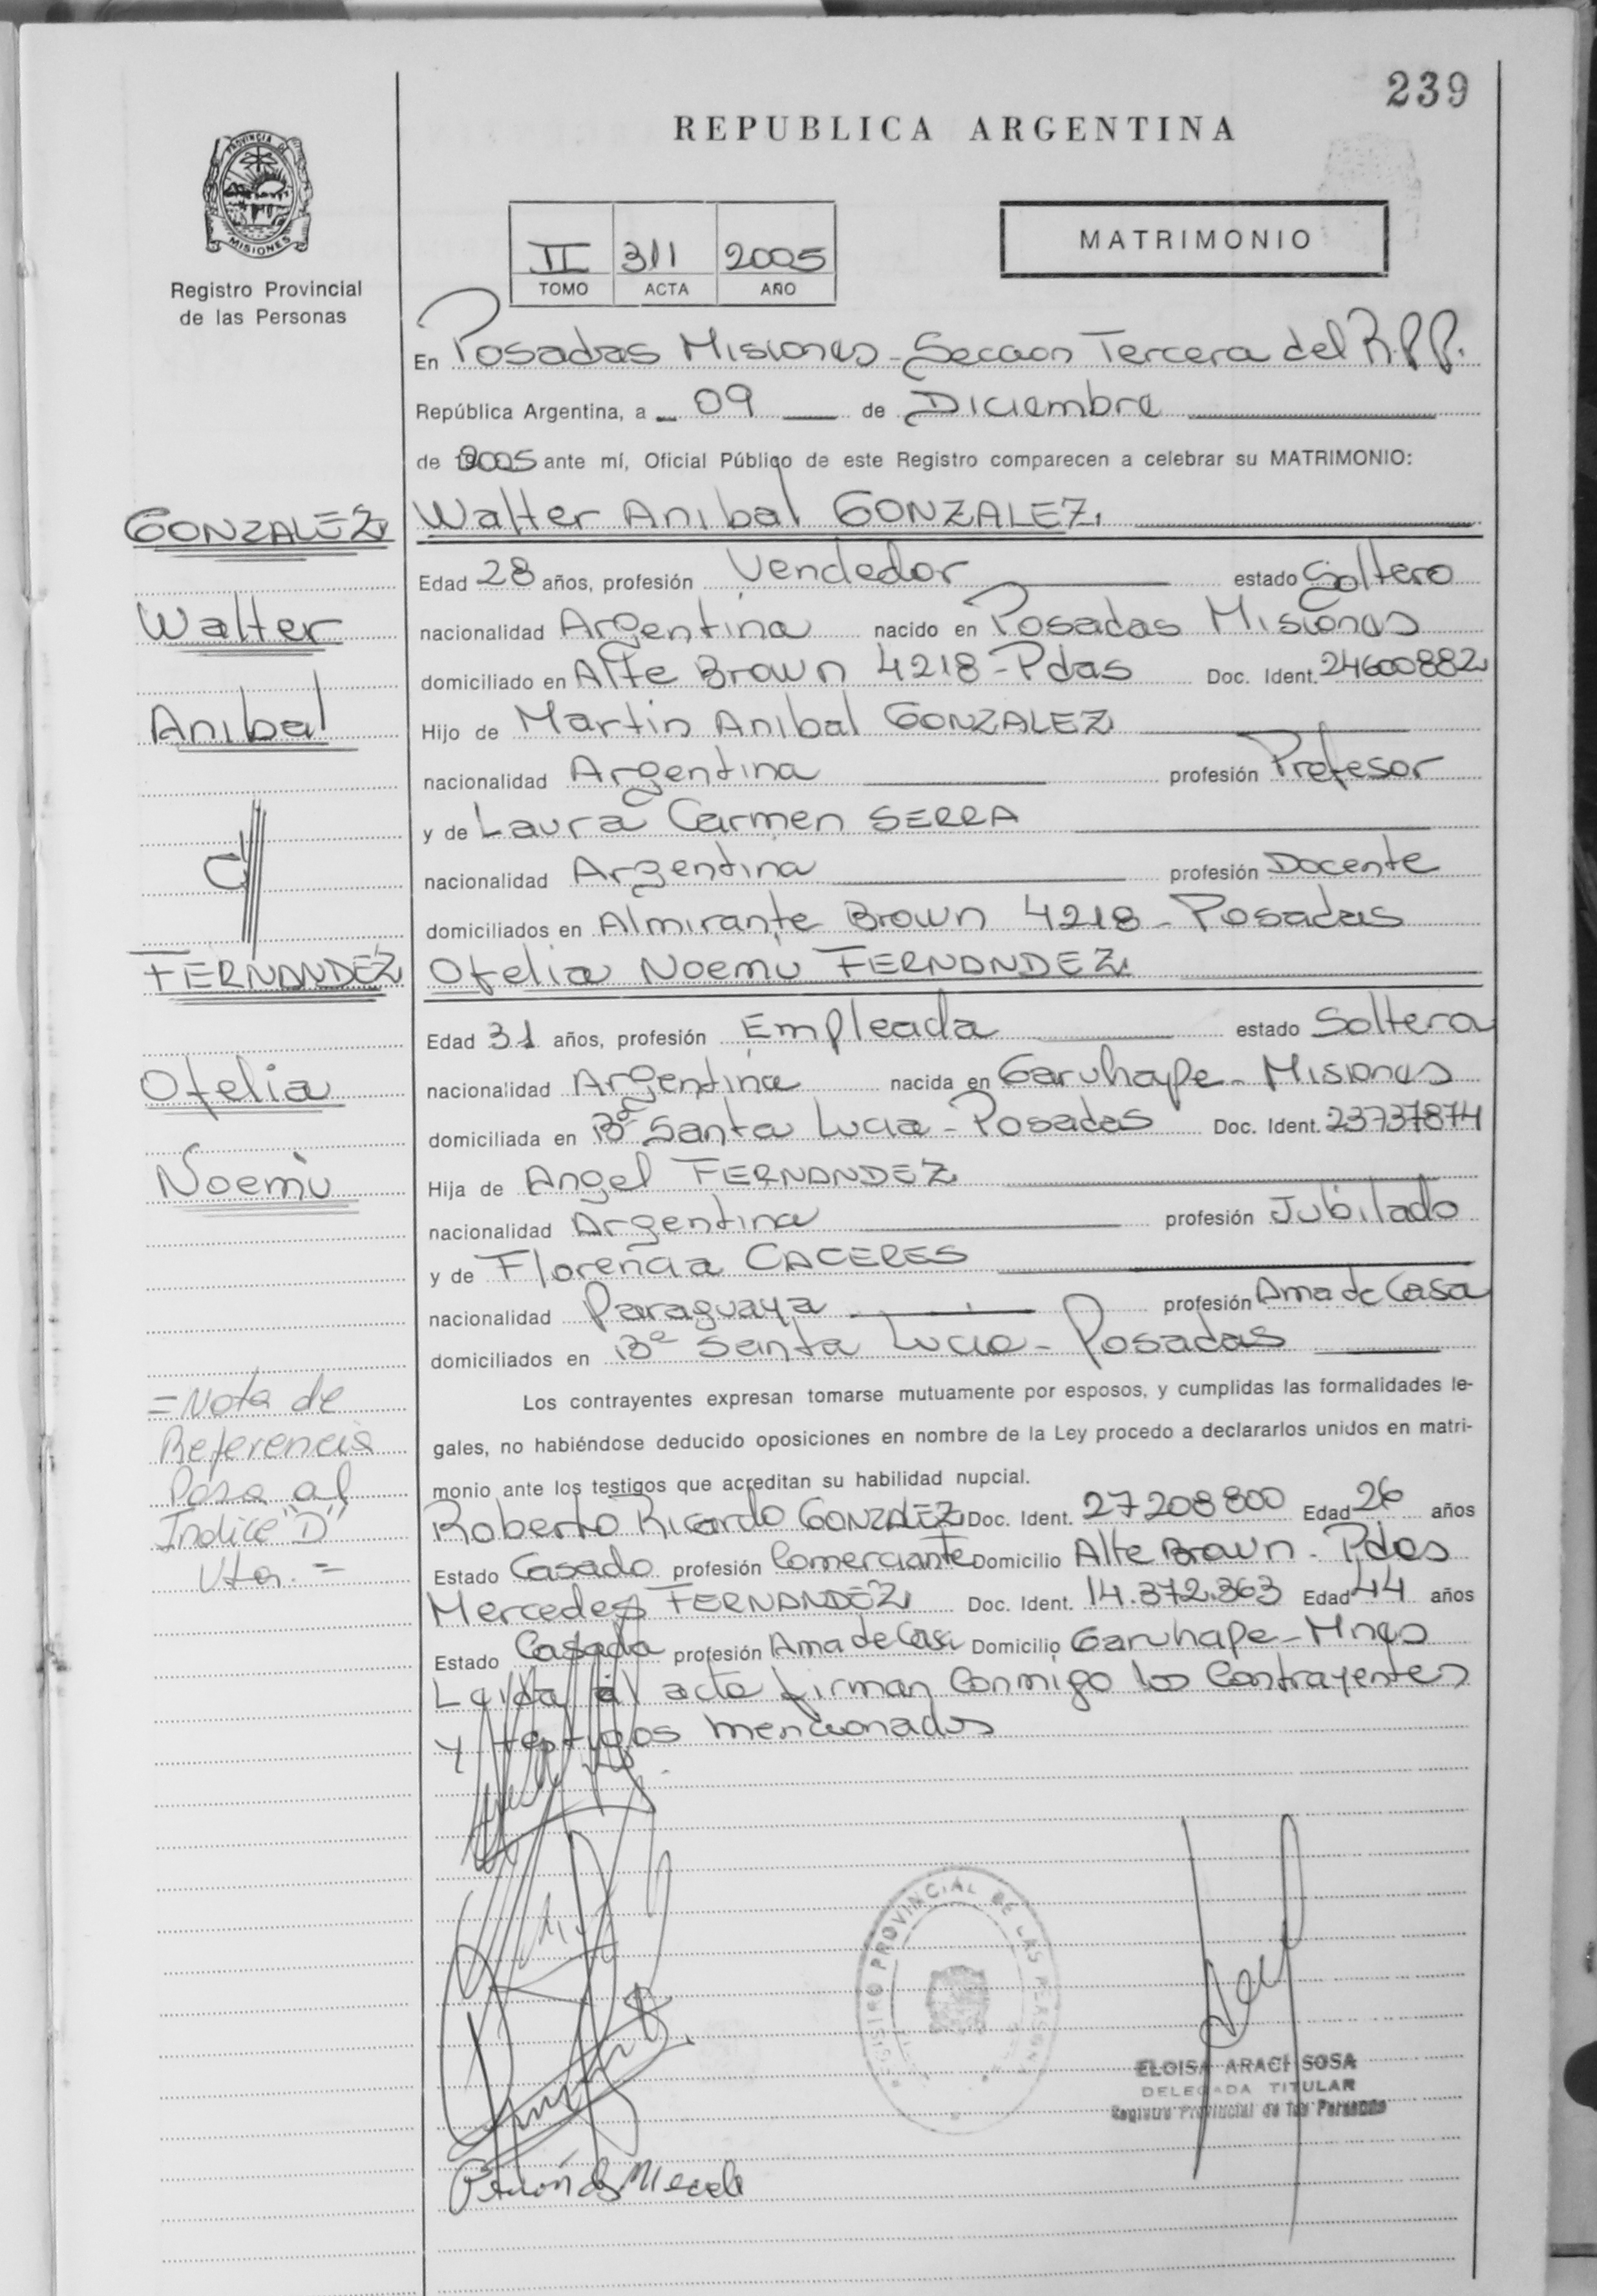 239
REPUBLICA ARGENTINA
PROVINCIA DE
MISIONES
Registro Provincial
de las Personas
II 311 2005
TOMO ACTA AÑO
MATRIMONIO
En Posadas Misiones - Seccion Tercera del R.P.P.
República Argentina, a 09 de Diciembre
de 2005 ante mí, Oficial Público de este Registro comparecen a celebrar su MATRIMONIO:
GONZALEZ
Walter Anibal GONZALEZ
Edad 28 años, profesión Vendedor estado Soltero
Walter
nacionalidad Argentina nacido en Posadas Misiones
domiciliado en Alte Brown 4218 - Pdas Doc. Ident. 24600882
Anibal
Hijo de Martin Anibal GONZALEZ
nacionalidad Argentina profesión Profesor
y de Laura Carmen SERRA
C/
nacionalidad Argentina profesión Docente
domiciliados en Almirante Brown 4218 - Posadas
FERNANDEZ
Ofelia Noemi FERNANDEZ
Edad 31 años, profesión Empleada estado Soltera
Ofelia
nacionalidad Argentina nacida en Garuhape - Misiones
domiciliada en Bº Santa Lucia - Posadas Doc. Ident. 23737874
Noemi
Hija de Angel FERNANDEZ
nacionalidad Argentina profesión Jubilado
y de Florencia CACERES
nacionalidad Paraguaya profesión Ama de Casa
domiciliados en Bº Santa Lucia - Posadas
= Nota de
Referencia
Pasa al
Indice "D"
Vta. =
Los contrayentes expresan tomarse mutuamente por esposos, y cumplidas las formalidades le-
gales, no habiéndose deducido oposiciones en nombre de la Ley procedo a declararlos unidos en matri-
monio ante los testigos que acreditan su habilidad nupcial.
Roberto Ricardo GONZALEZ Doc. Ident. 27208800 Edad 26 años
Estado Casado profesión Comerciante Domicilio Alte Brown - Pdas
Mercedes FERNANDEZ Doc. Ident. 14.372.363 Edad 44 años
Estado Casada profesión Ama de Casa Domicilio Garuhape - Mnes
Leida el acta firman conmigo los contrayentes
y testigos mencionados
REGISTRO PROVINCIAL DE LAS PERSONAS
ELOISA ARACI SOSA
DELEGADA TITULAR
Registro Provincial de las Personas